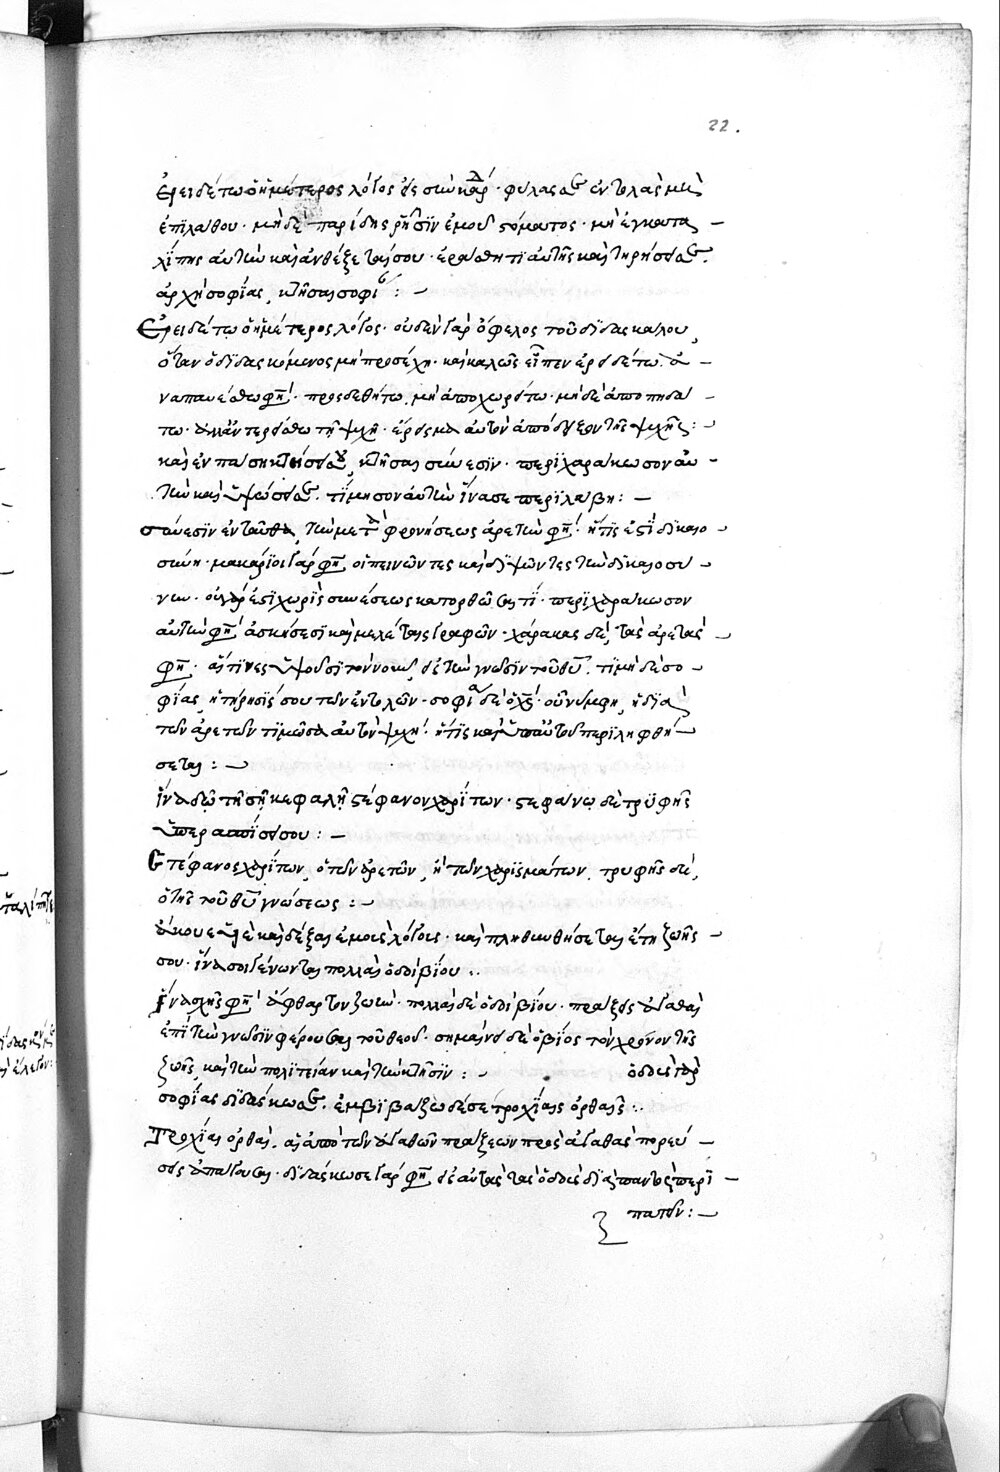 22.
ἐρειδέτω ὁ ἡμέτερος λόγος εἰς σὴν καρδ· φύλασσε ἐντολὰς μὴ
ἐπϊλάθου· μὴ δὲ παρίδης ῥῆσϊν ἐμοῦ στόματος· μὴ ἐγκατα
λίπης αὐτὴν καὶ ἀνθέξεταί σου· ἐράσθητϊ αὐτῆς καὶ τηρήσει σε.
ἀρχὴ σοφΐας, κτῆσαι σοφί :
Ἐρειδέτω ὁ ἡμέτερος λόγος· οὐδὲν γὰρ ὄφελος τοῦ δϊδασκάλου,
ὅταν ὁ δϊδασκόμενος μὴ προσέχη· καὶ καλῶς εἶπεν ἐρειδέτω. ἀ
ναπαυέσθω φη· προσδεθήτω. μὴ ἀποχωρείτω· μὴ δὲ ἀποπηδά
τω· ἀλλ' ἐντερείσθω τῆ ψυχῆ· αὐτὸν τῆς ψυχῆς:
καὶ ἐν πάση κτήσει σου, κτῆσαι σύνεσϊν· περϊχαράκωσον αὐ
τὴν καὶ ὑψώσει σε. τΐμησον αὐτὴν ἵνα σε περϊλάβη :
σύνεσϊν ἐνταῦθα, τὴν μετὰ φρονήσεως ἀρετὴν φη· ἥτϊς ἐστΐ δϊκαιο
σύνη· μακάρϊοι γάρ φη, οἱ πεινῶντες καὶ δϊψῶντες τὴν δϊκαιοσύ
νην· οὐ γάρ ἐστϊ χωρὶς συνέσεως κατορθῶσαι τί· περϊχαράκωσον
αὐτὴν φη ἀσκήσεσϊ καὶ μελέταις γραφῶν· χάρακας δὲ, τὰς ἀρετὰς
φη· αἵ τϊνες ὑψοῦσϊ τὸν νοῦν, εἰς τὴν γνῶσϊν τοῦ θυ. τϊμὴ δὲ σο
φΐας, ἡ τήρησΐς σου τῶν ἐντολῶν· σοφία δὲ ὁ χς· οὗ νύμφη, ἡ δϊὰ
τῶν ἀρετῶν τϊμῶσα αὐτὸν ψυχή· ἥτϊς καὶ ὑπ' αὐτοῦ περϊληφθή
σεται :
ἵνα δῶ τῆ σῆ κεφαλῆ στέφανον χαρΐτων· στεφάνω δὲ τρϋφῆς
ὑπερασπΐσει σου :
Στέφανος χαρΐτων, ὁ τῶν ἀρετῶν, ἢ τῶν χαρϊσμάτων. τρυφῆς δὲ,
ὁ τῆς τοῦ θυ γνώσεως :
ἄκουε υἱὲ καὶ δέξαι ἐμοὺς λόγους· καὶ πληθυνθήσεται ἔτη ζωῆς
σου· ἵνα σοι γένωνται πολλαὶ ὁδοὶ βΐου :
ἵνα σχῆς φη ἄφθαρτον ζωήν· πολλαὶ δὲ ὁδοὶ βΐου· πράξεις ἀγαθαὶ
ἐπΐ τὴν γνῶσϊν φέρουσαι τοῦ θεοῦ· σημαίνει δὲ ὁ βΐος τὸν χρόνον τῆς
ζωῆς, καὶ τὴν πολϊτείαν καὶ τὴν κτῆσϊν : ὁδοὺς γὰρ
σοφΐας δϊδάσκω σε. ἐμβϊβάζω δέ σε τροχΐαις ὀρθαῖς :
Τροχΐαι ὀρθαὶ. αἱ ἀπὸ τῶν ἀγαθῶν πράξεων πρὸς ἀγαθὰς πορεύ
σεις ἀπάγουσαι· δϊδάσκω σε γάρ φη, εἰς αὐτὰς τὰς ὁδοὺς δϊαπαντὸς περϊ
πατεῖν :